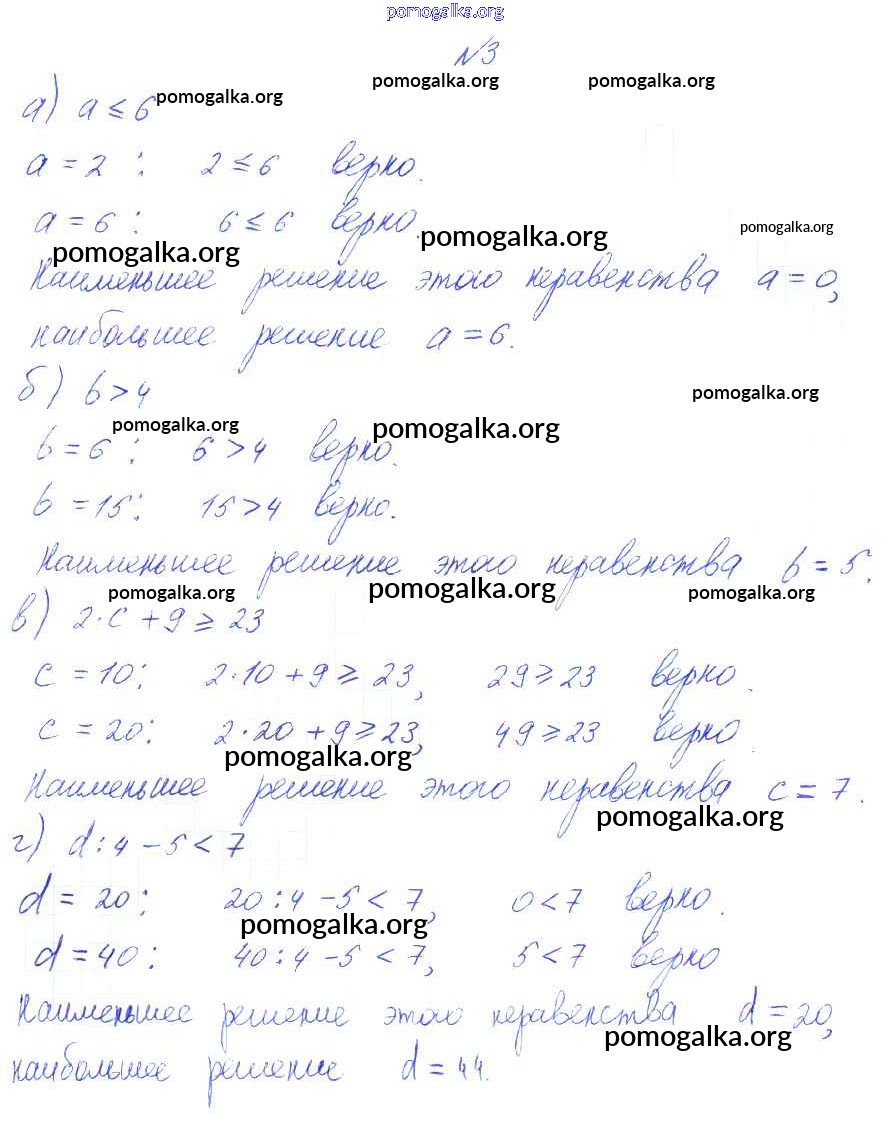 pomogalka.org
№3
pomogalka.org pomogalka.org
а) a ≤ 6 pomogalka.org
a = 2 : 2 ≤ 6 верно.
a = 6 : 6 ≤ 6 верно.
pomogalka.org pomogalka.org pomogalka.org
Наименьшее решение этого неравенства a = 0,
наибольшее решение a = 6.
б) b > 4 pomogalka.org
pomogalka.org pomogalka.org
b = 6 : 6 > 4 верно.
b = 15 : 15 > 4 верно.
Наименьшее решение этого неравенства b = 5.
pomogalka.org pomogalka.org pomogalka.org
в) 2·c + 9 ≥ 23
c = 10 : 2·10 + 9 ≥ 23, 29 ≥ 23 верно.
c = 20 : 2·20 + 9 ≥ 23, 49 ≥ 23 верно.
pomogalka.org
Наименьшее решение этого неравенства c = 7.
pomogalka.org
г) d : 4 - 5 < 7
d = 20 : 20 : 4 - 5 < 7, 0 < 7 верно.
pomogalka.org
d = 40 : 40 : 4 - 5 < 7, 5 < 7 верно
Наименьшее решение этого неравенства d = 20,
pomogalka.org
наибольшее решение d = 44.